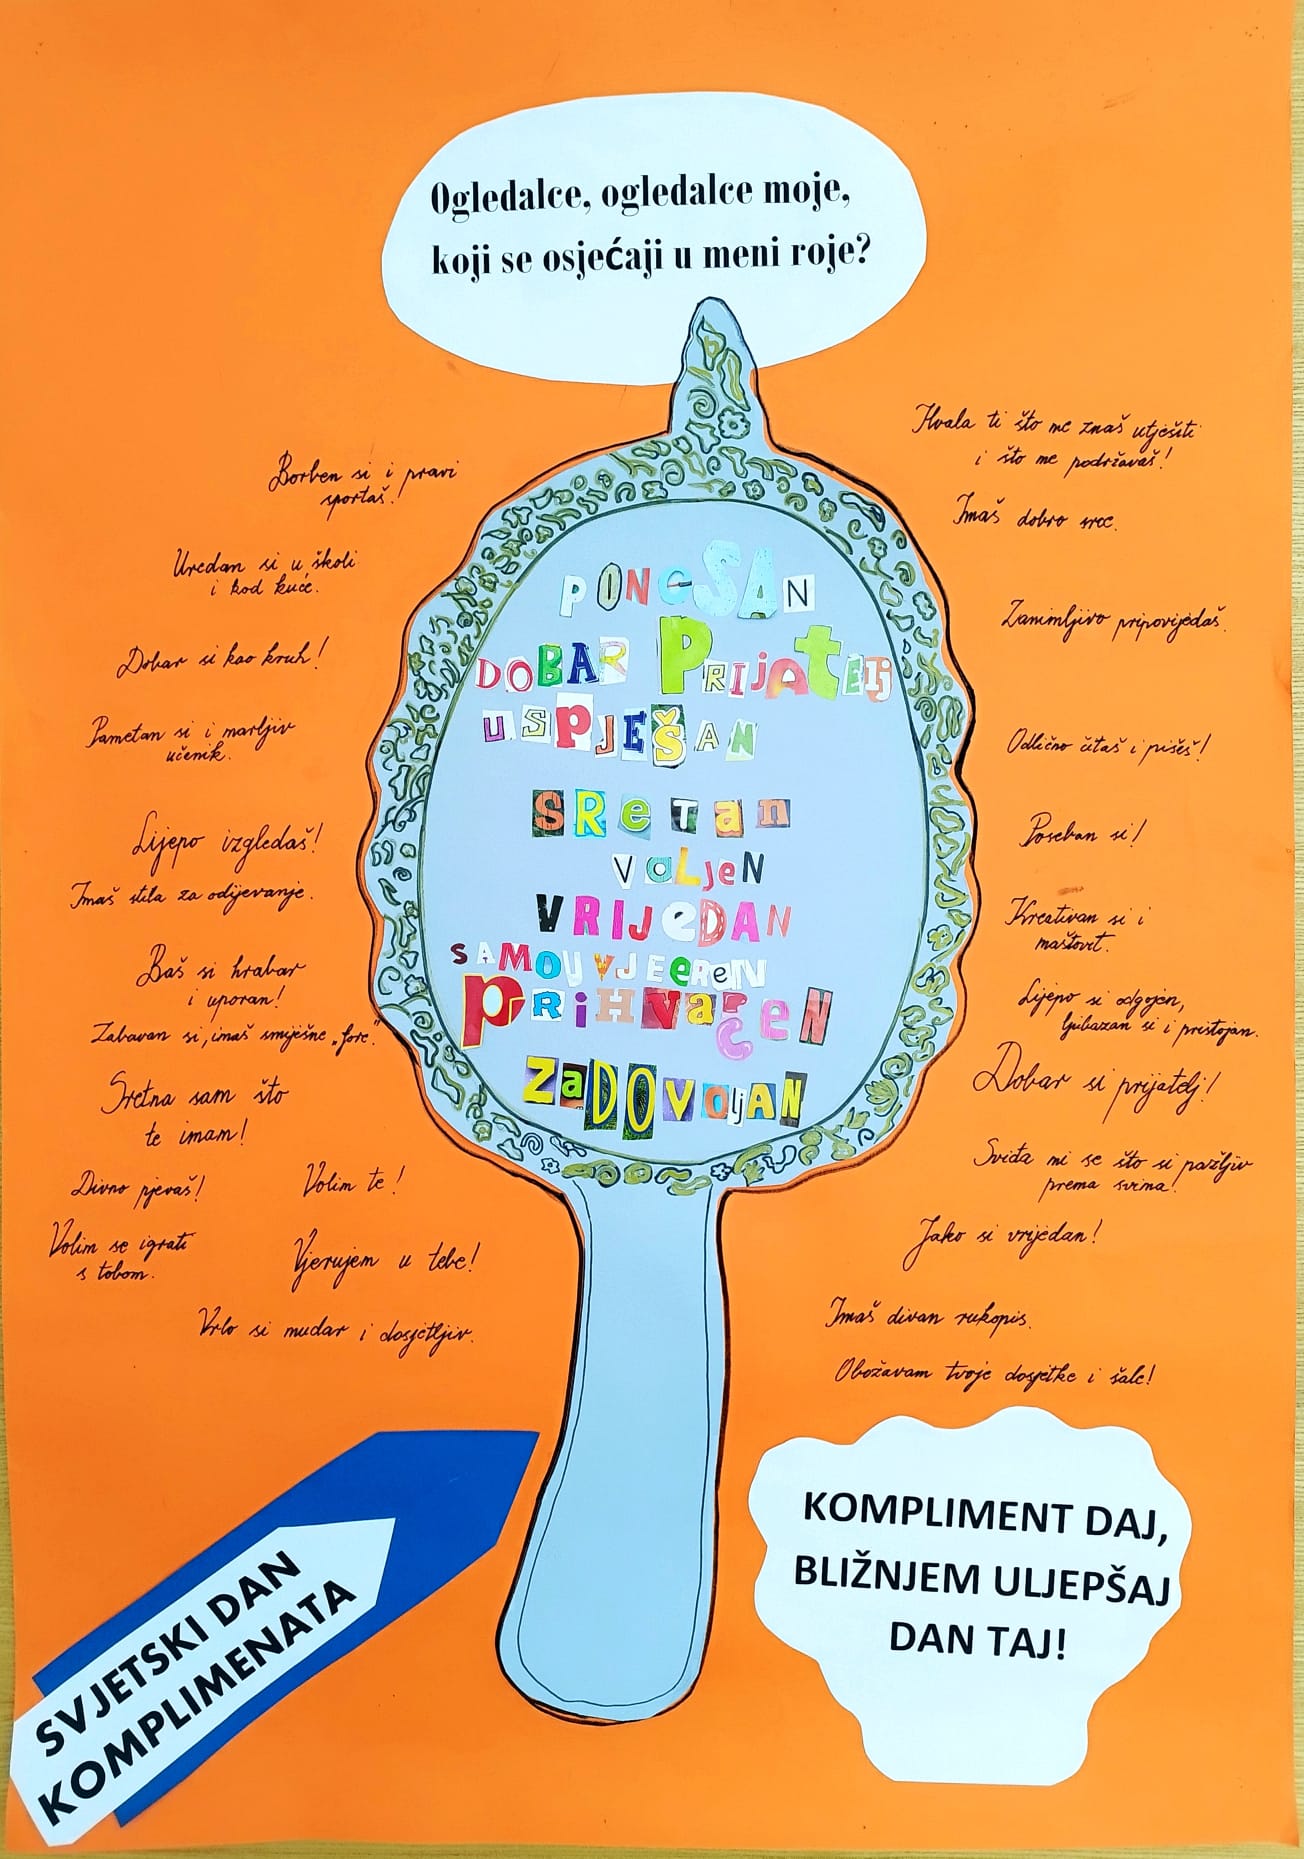 Ogledalce, ogledalce moje,
koji se osjećaji u meni roje?
Borben si i pravi
sportaš!
Uredan si u školi
i kod kuće.
Dobar si kao kruh!
Pametan si i marljiv
učenik.
Lijepo izgledaš!
Imaš stila za odijevanje.
Baš si hrabar
i uporan!
Zabavan si, imaš smiješne „fore".
Sretna sam što
te imam!
Divno pjevaš!
Volim te!
Volim se igrati
s tobom.
Vjerujem u tebe!
Vrlo si mudar i dosjetljiv.
PONOSAN
DOBAR PRIJATELj
USPJEŠAN
SReTan
VOLjeN
VRIJeDAN
SAMOUVJEEReN
PRiHVaćeN
ZaDOVOljAN
Hvala ti što me znaš utješiti
i što me podržavaš!
Imaš dobro srce.
Zanimljivo pripovijedaš.
Odlično čitaš i pišeš!
Poseban si!
Kreativan si i
maštovit.
Lijepo si odgojen,
ljubazan si i pristojan.
Dobar si prijatelj!
Sviđa mi se što si pažljiv
prema svima!
Jako si vrijedan!
Imaš divan rukopis.
Obožavam tvoje dosjetke i šale!
SVJETSKI DAN
KOMPLIMENATA
KOMPLIMENT DAJ,
BLIŽNJEM ULJEPŠAJ
DAN TAJ!